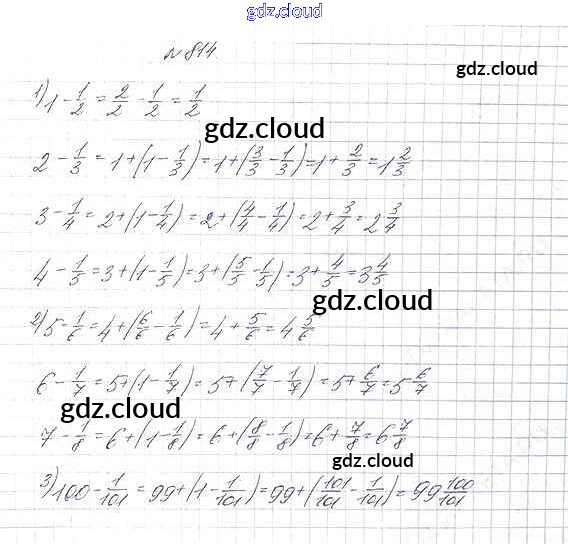 gdz.cloud
№ 814
gdz.cloud
1) 1 - 1/2 = 2/2 - 1/2 = 1/2
gdz.cloud
2 - 1/3 = 1 + (1 - 1/3) = 1 + (3/3 - 1/3) = 1 + 2/3 = 1 2/3
3 - 1/4 = 2 + (1 - 1/4) = 2 + (4/4 - 1/4) = 2 + 3/4 = 2 3/4
gdz.cloud
4 - 1/5 = 3 + (1 - 1/5) = 3 + (5/5 - 1/5) = 3 + 4/5 = 3 4/5
gdz.cloud
2) 5 - 1/6 = 4 + (6/6 - 1/6) = 4 + 5/6 = 4 5/6
6 - 1/7 = 5 + (1 - 1/7) = 5 + (7/7 - 1/7) = 5 + 6/7 = 5 6/7
gdz.cloud
7 - 1/8 = 6 + (1 - 1/8) = 6 + (8/8 - 1/8) = 6 + 7/8 = 6 7/8
gdz.cloud
3) 100 - 1/101 = 99 + (1 - 1/101) = 99 + (101/101 - 1/101) = 99 100/101